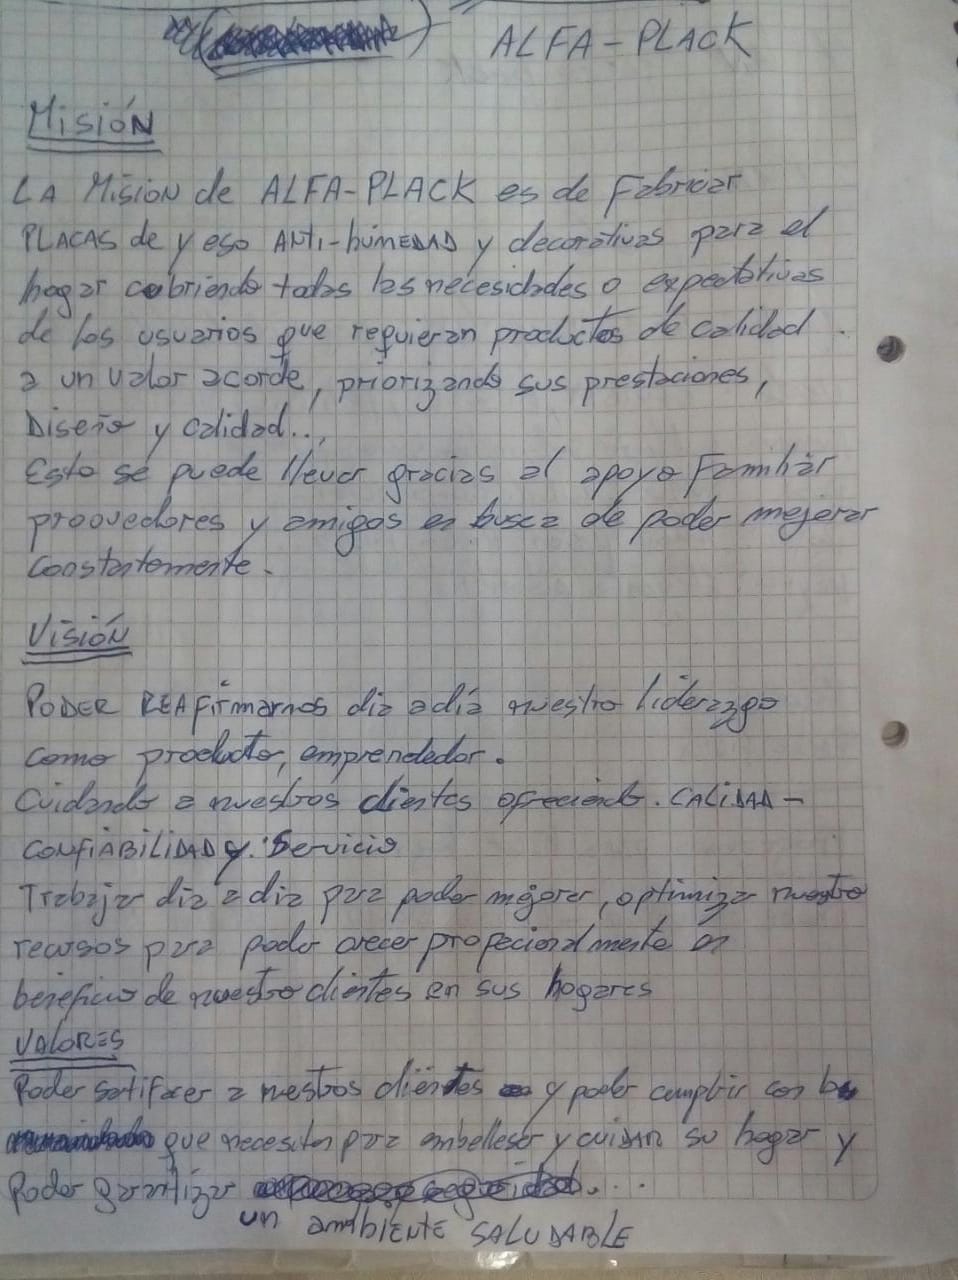 ALFA-PLACK
Misión
LA Misión de ALFA-PLACK es de Fabricar
PLACAS de yeso ANTI-húMEDAD y decorativas para el
hogar cubriendo todas las necesidades o expectativas
de los usuarios que requieran productos de calidad.
a un valor acorde, priorizando sus prestaciones,
Diseño y calidad...
Esto se puede llevar gracias al apoyo Familiar
proovedores y amigos en busca de poder mejorar
constantemente.
Visión
PODER REAFirmarnos dia a día nuestro liderazgo
como producto, emprendedor.
Cuidando a nuestros clientes ofreciendo. CALIDAD-
CONFIABILIDAD y. Servicio
Trabajar dia a dia para poder mejorar, optimizar nuestro
recursos para poder crecer profecionalmente en
beneficio de nuestro clientes en sus hogares
VALORES
Poder satifacer a nuestros clientes y poder cumplir con lo
que necesiten para embellesor y cuidar su hogar y
Poder garantizar ....
un ambiente SALUDABLE